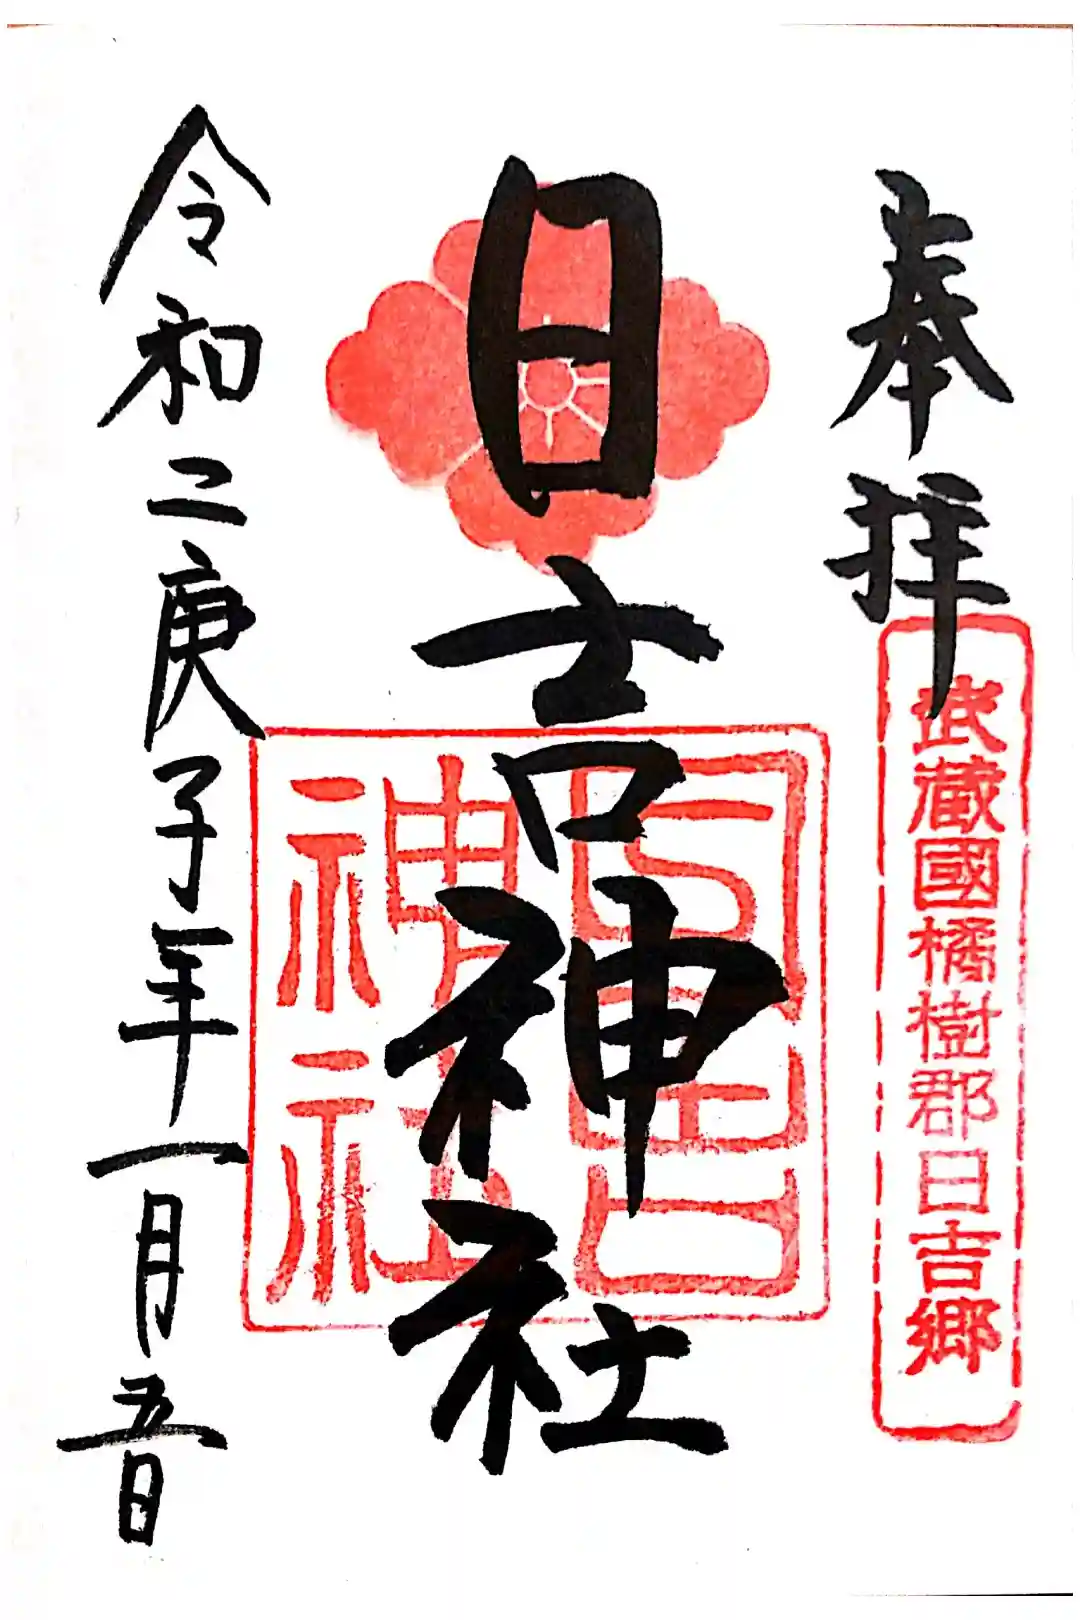 奉拝
武蔵國橘樹郡日吉郷
日吉神社
日吉
神社
令和二庚子年一月五日